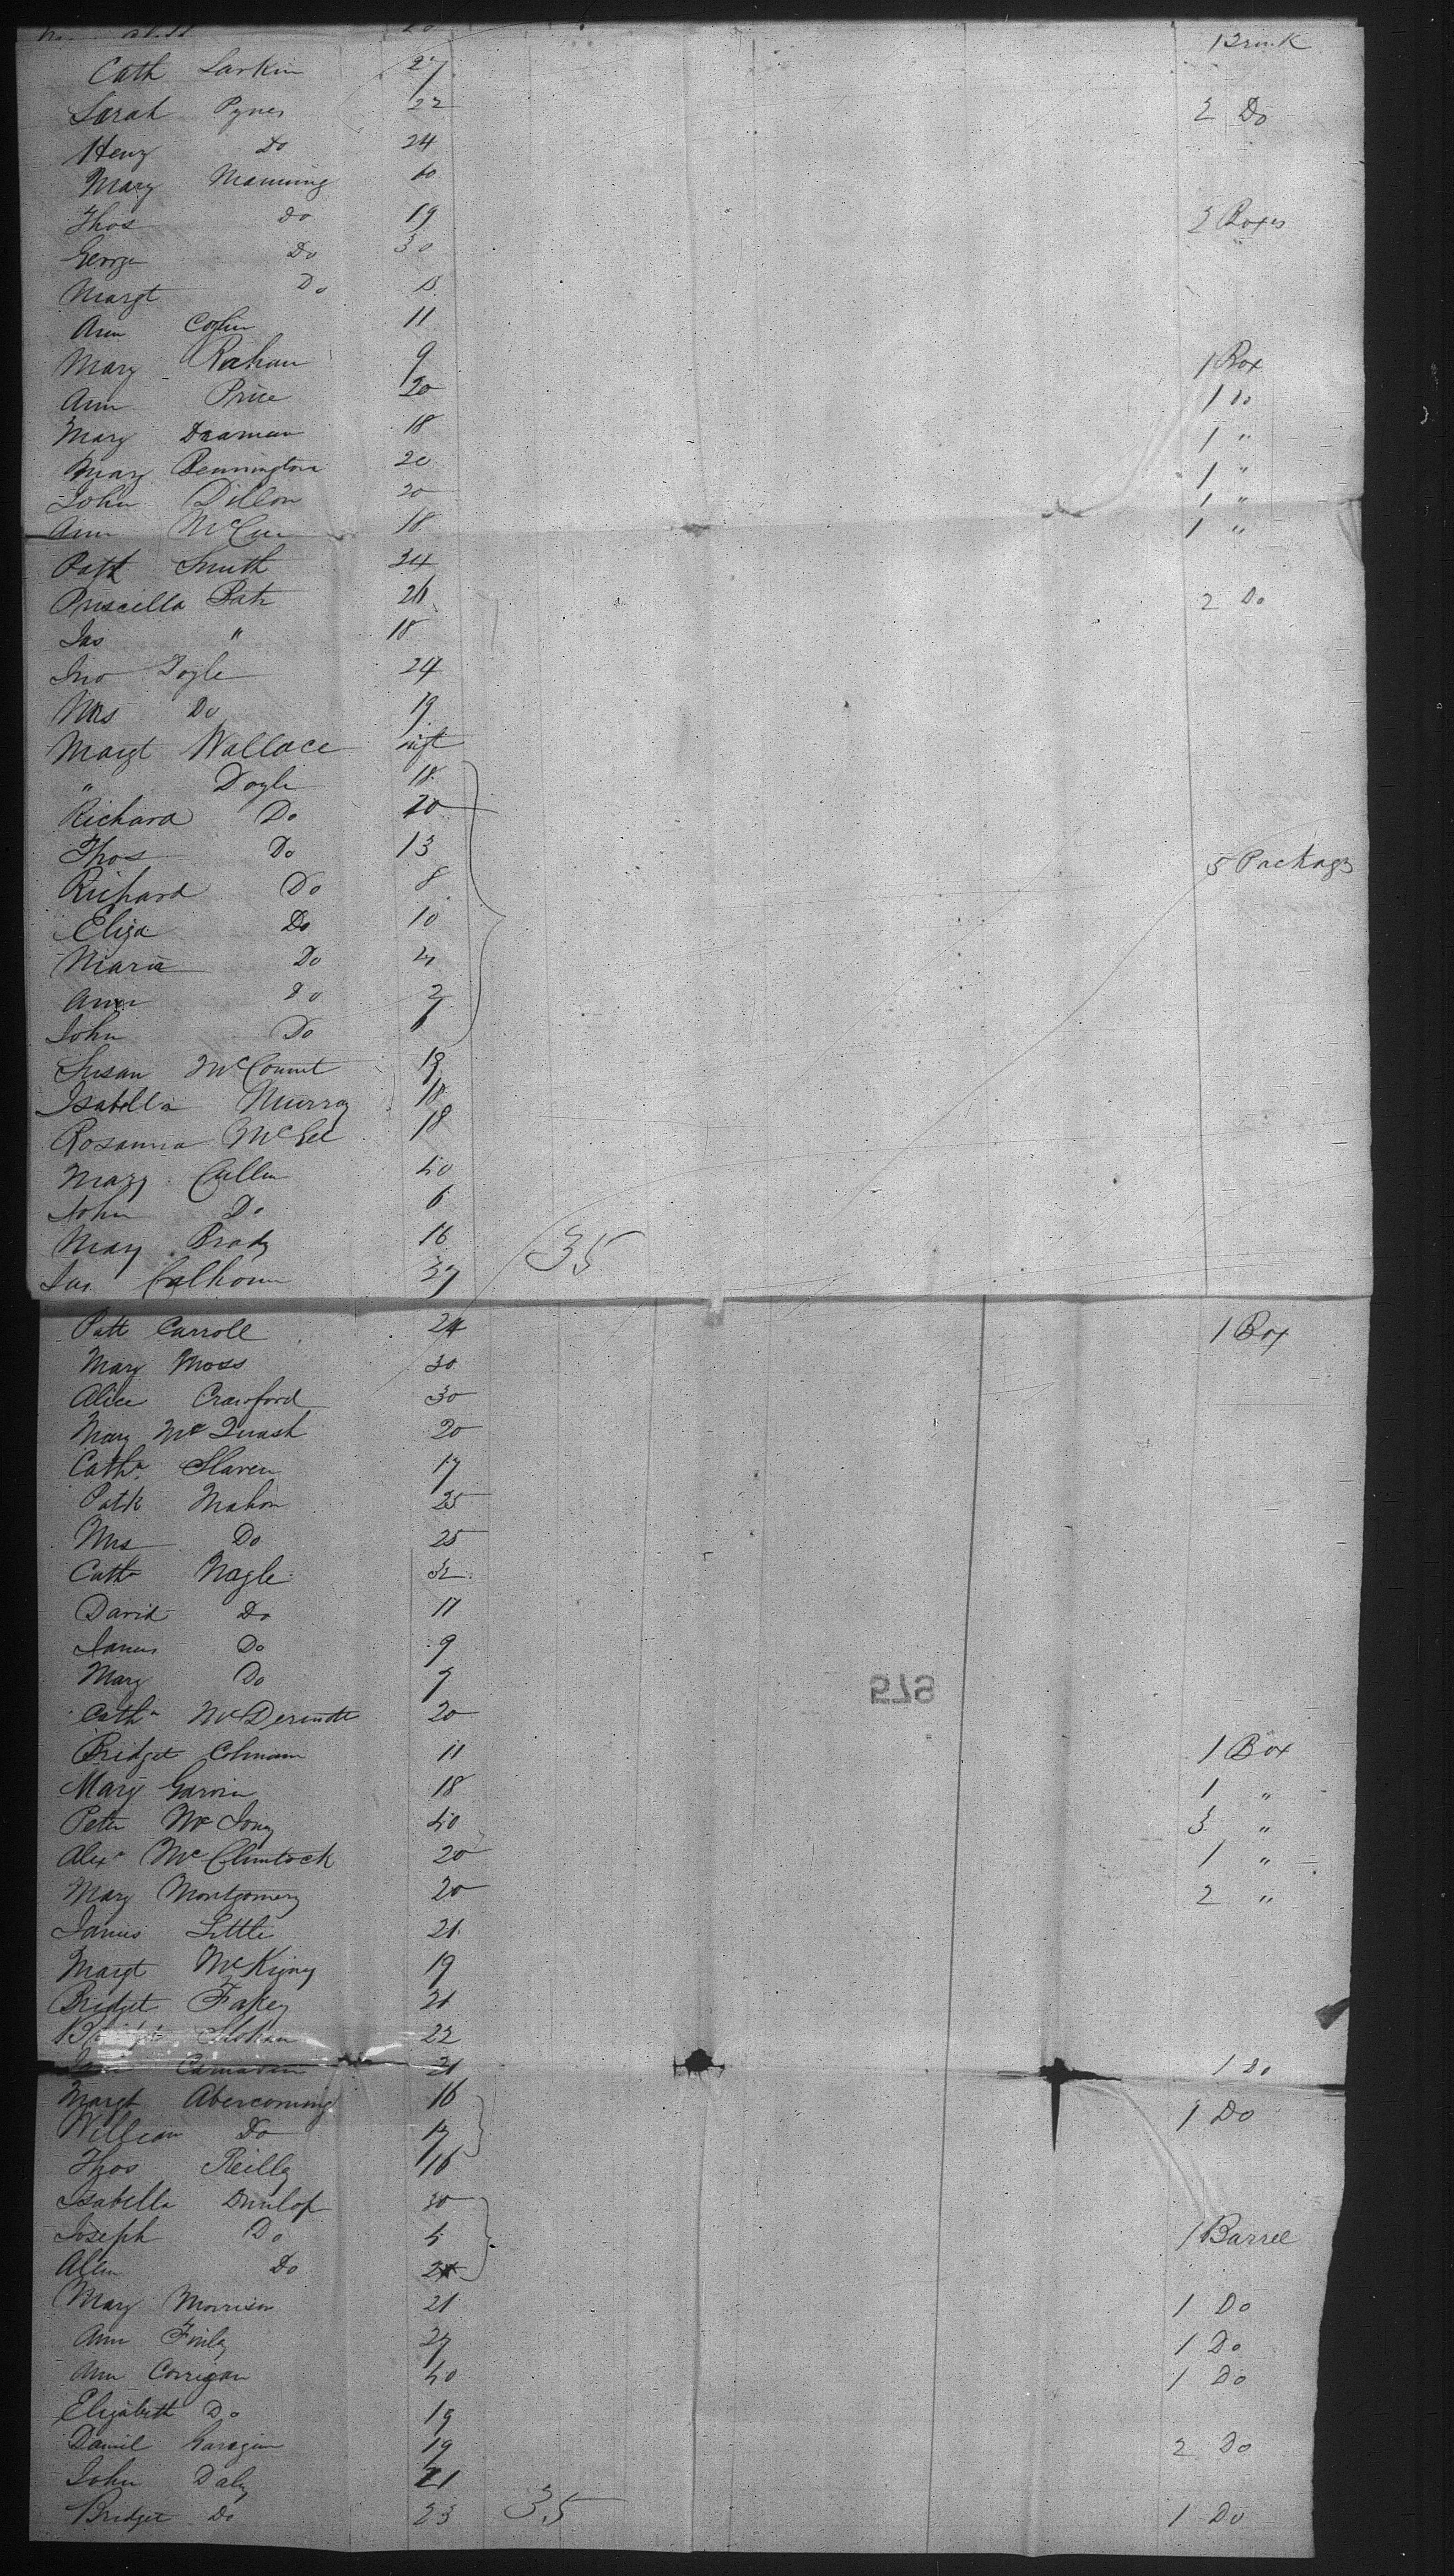 1 Trunk
Cath Larkin 27
Sarah Pynes 22 2 Do
Heny Do 24
Mary Manning 60
Thos Do 19 2 Boxes
George Do 30
Margt Do
Ann 11
Mary 9 1 Box
Ann Price 20 1 Do
Mary 18 1 "
Mary Bennington 20 1 "
John Dillon 20 1 "
Ann McCue 18 1 "
Patk Smith 24
Priscilla 26 2 Do
Jas " 18
Jno 24
Mrs Do 19
Margt Wallace inft
" Doyle 18
Richard Do 20
Thos Do 13 5 Packages
Richard Do 8
Eliza Do 10
Maria Do 4
Ann Do 2
John Do 6
Susan 19
Isabella Murray 18
Rosanna McGee 18
Mary Cullen 40
John Do 6
Mary Brady 16 35
Jas Calhoun 37
Patt Carroll 24 1 Box
Mary Moss 30
Alice Crawford 30
Mary 20
Catha Slaven 17
Patk Mahon 25
Mrs Do 25
Catha Nagle 32
David Do 11
James Do 9
Mary Do 7
Catha McDermott 20
Bridget 11 1 Box
Mary Garvin 18 1 "
Peter 40 3 "
Alexr McClintock 20 1 "
Mary Montgomery 20 2 "
James Little 21
Margt 19
Bridget Fahey 21
22
21 1 Do
Margt Abercoming 16 1 Do
William Do 17
Thos Reilly 16
Isabella Dunlop 30
Joseph Do 4 1 Barrel
Do
Mary Morrison 21 1 Do
Ann Finlay 27 1 Do
Ann Corrigan 40 1 Do
Elizabeth Do 19
Daniel 19 2 Do
John Daly 21
Bridget Do 23 35 1 Do
679